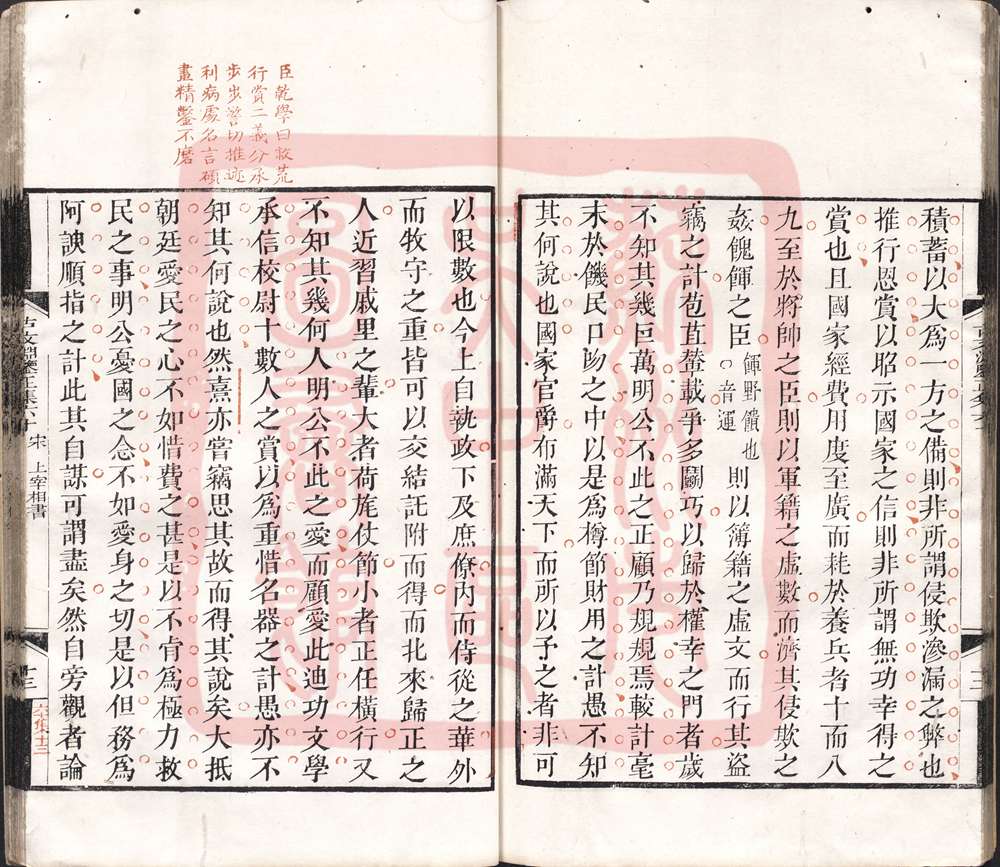 積蓄以大為一方之備則非所謂侵欺滲漏之弊也
推行恩賞以昭示國家之信則非所謂無功幸得之
賞也且國家經費用度至廣而耗於養兵者十而八
九至於將帥之臣則以軍籍之虛數而濟其侵欺之
姦餽餫之臣
餫野饋也
音運
則以簿籍之虛文而行其盜
竊之計苞苴輦載爭多鬬巧以歸於權幸之門者歲
不知其幾巨萬明公不此之正顧乃規規焉較計毫
末於饑民口吻之中以是為樽節財用之計愚不知
其何說也國家官爵布滿天下而所以予之者非可
臣乾學曰救荒
行賞二義分承
步步警切推迹
利病處名言碩
畫精鑿不磨
以限數也今上自執政下及庶僚內而侍從之華外
而牧守之重皆可以交結託附而得而北來歸正之
人近習戚里之輩大者荷旄仗節小者正任橫行又
不知其幾何人明公不此之愛而顧愛此迪功文學
承信校尉十數人之賞以為重惜名器之計愚亦不
知其何說也然熹亦嘗竊思其故而得其說矣大抵
朝廷愛民之心不如惜費之甚是以不肯為極力救
民之事明公憂國之念不如愛身之切是以但務為
阿諛順指之計此其自謀可謂盡矣然自旁觀者論
宋 上宰相書
十三